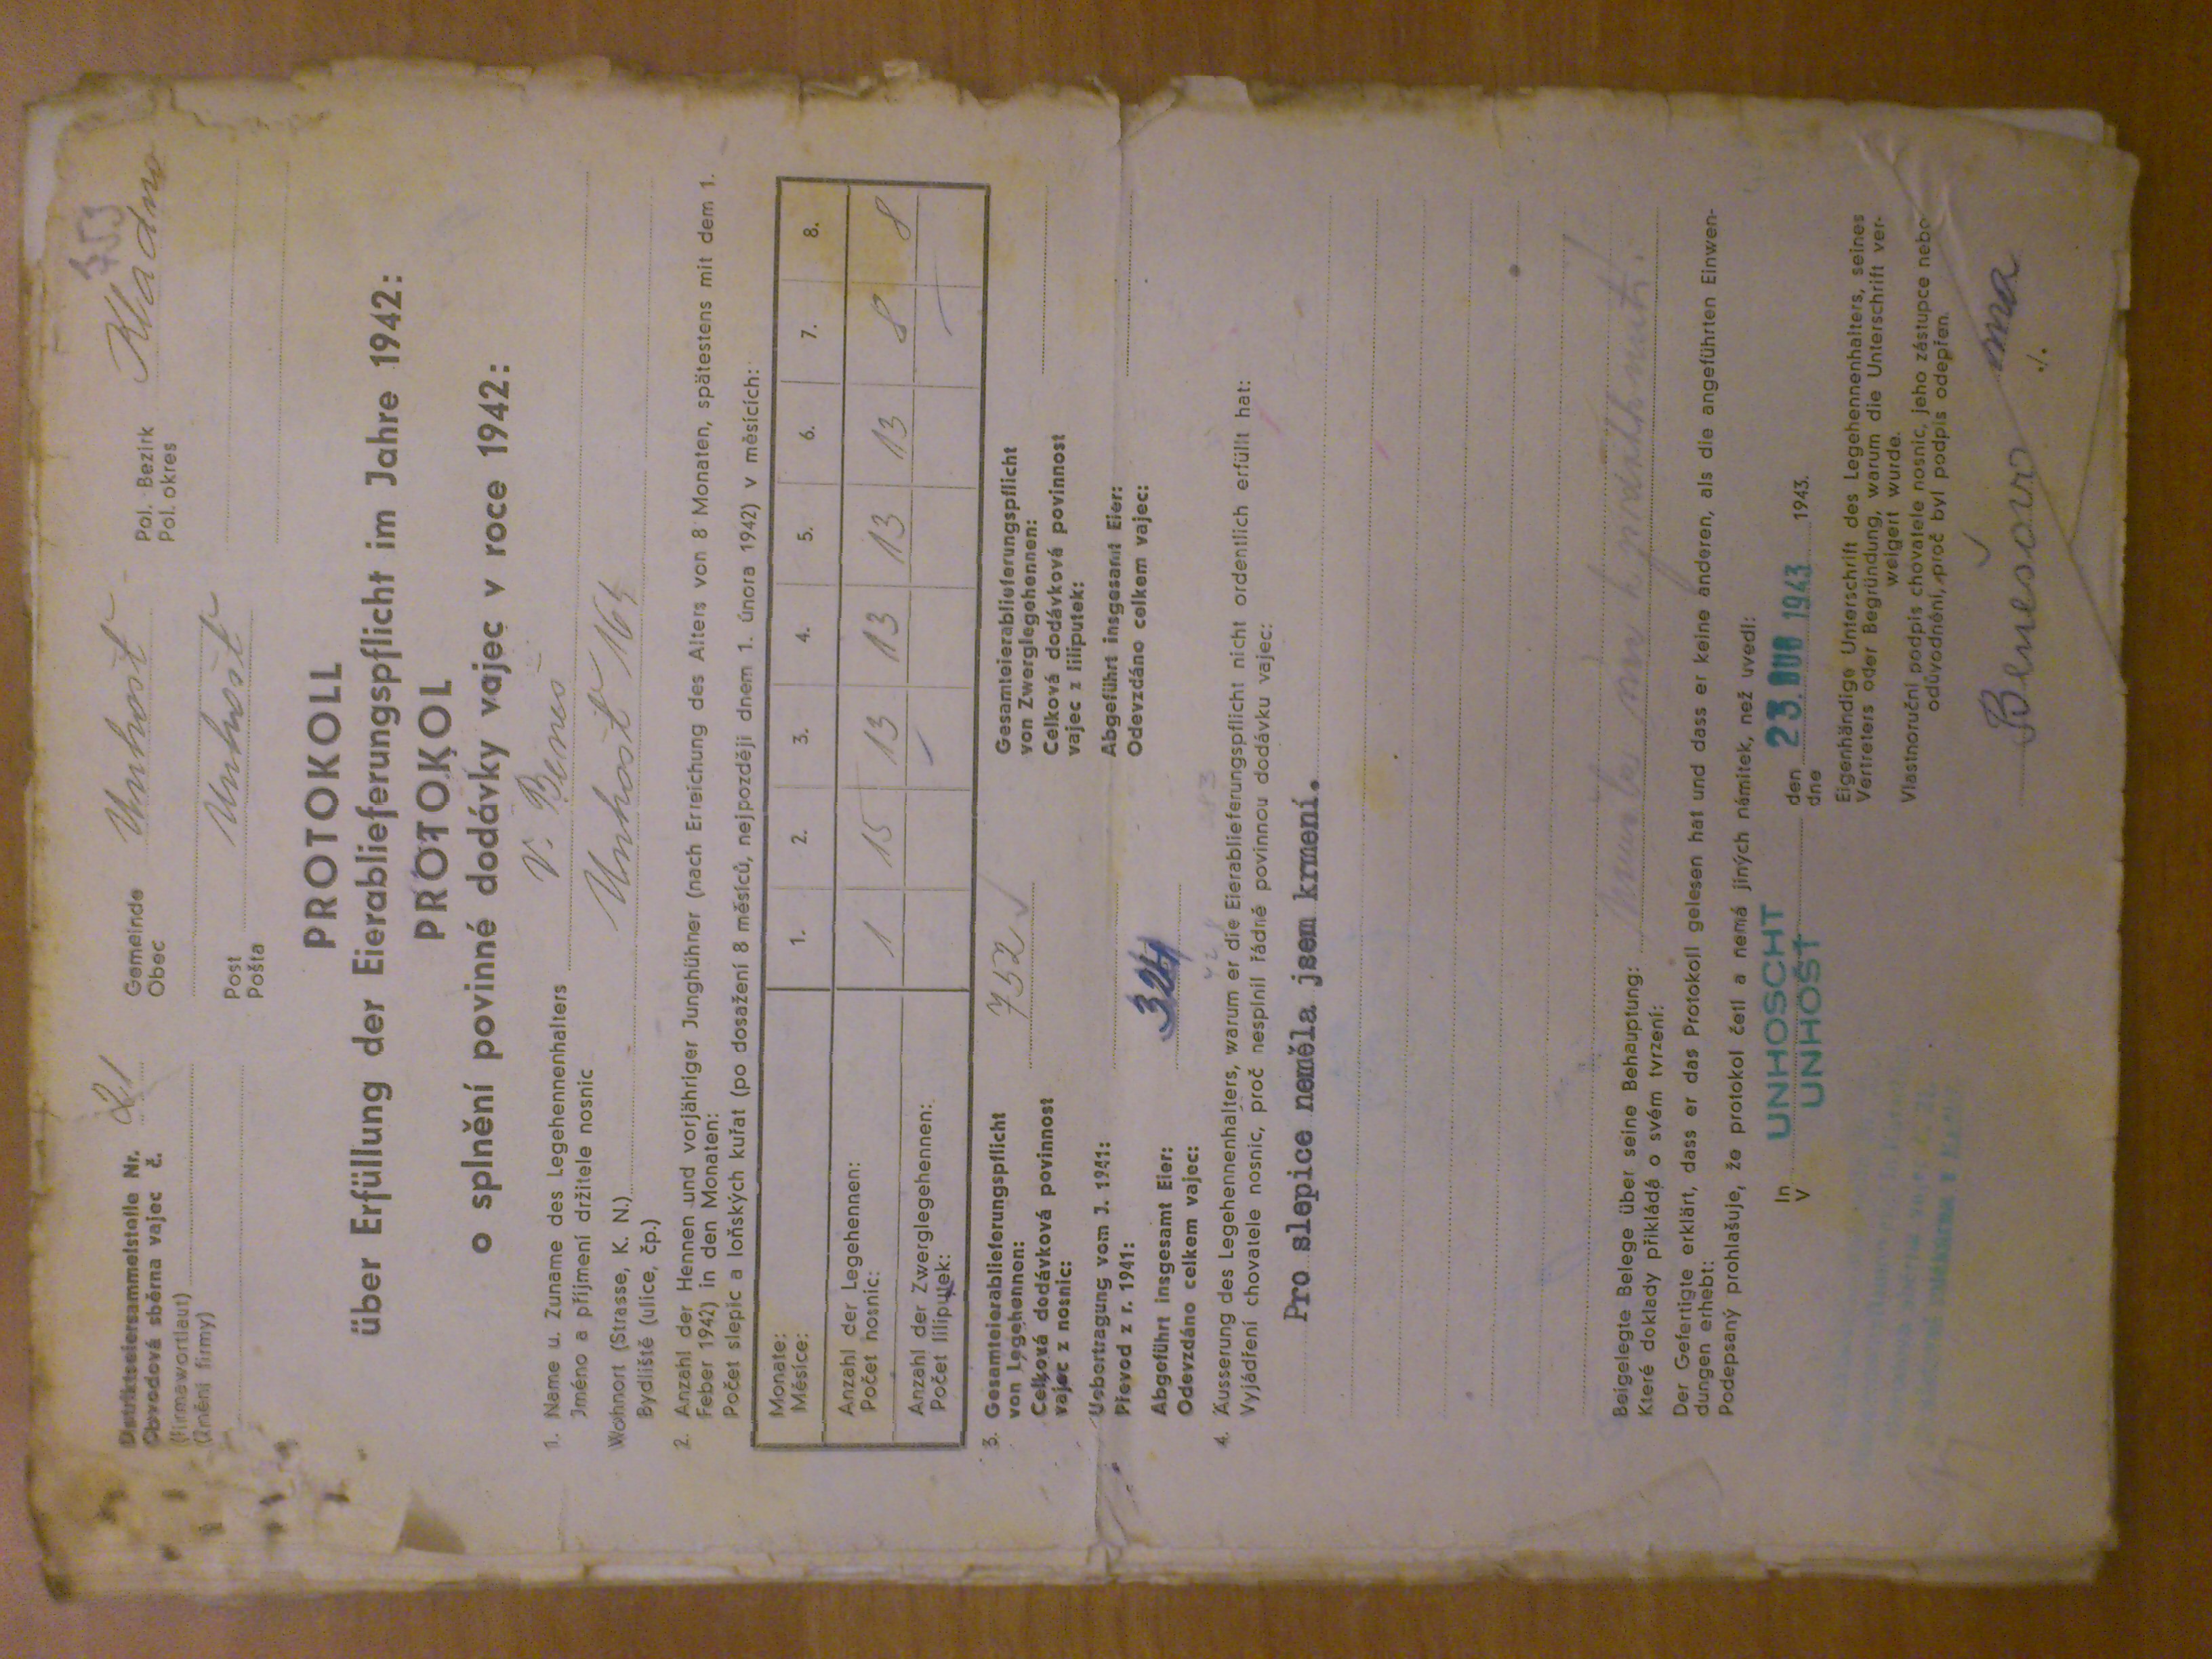 753
Distriktseiersammelstelle Nr. 21
Obvodová sběrna vajec č.
(Firmawortlaut)
(Znění firmy)
Gemeinde Unhošť
Obec
Post Unhošť
Pošta
Pol. Bezirk Kladno
Pol. okres
PROTOKOLL
über Erfüllung der Eierablieferungspflicht im Jahre 1942:
PROTOKOL
o splnění povinné dodávky vajec v roce 1942:
1. Name u. Zuname des Legehennenhalters V. Beneš
Jméno a příjmení držitele nosnic
Wohnort (Strasse, K. N.) Unhošť 164
Bydliště (ulice, čp.)
2. Anzahl der Hennen und vorjähriger Junghühner (nach Erreichung des Alters von 8 Monaten, spätestens mit dem 1.
Feber 1942) in den Monaten:
Počet slepic a loňských kuřat (po dosažení 8 měsíců, nejpozději dnem 1. února 1942) v měsících:
Monate:
Měsíce:
1. 2. 3. 4. 5. 6. 7. 8.
Anzahl der Legehennen:
Počet nosnic:
1 15 13 13 13 13 8 8
Anzahl der Zwerglegehennen:
Počet liliputek:
3. Gesamteierablieferungspflicht
von Legehennen: 752
Celková dodávková povinnost
vajec z nosnic:
Uebertragung vom J. 1941:
Převod z r. 1941:
Abgeführt insgesamt Eier: 324
Odevzdáno celkem vajec:
Gesamteierablieferungspflicht
von Zwerglegehennen:
Celková dodávková povinnost
vajec z liliputek:
Abgeführt insgesamt Eier:
Odevzdáno celkem vajec:
4. Äusserung des Legehennenhalters, warum er die Eierablieferungspflicht nicht ordentlich erfüllt hat:
Vyjádření chovatele nosnic, proč nesplnil řádně povinnou dodávku vajec:
Pro slepice neměla jsem krmení.
Beigelegte Belege über seine Behauptung:
Které doklady přikládá o svém tvrzení:
Der Gefertigte erklärt, dass er das Protokoll gelesen hat und dass er keine anderen, als die angeführten Einwen-
dungen erhebt:
Podepsaný prohlašuje, že protokol četl a nemá jiných námitek, než uvedl:
In UNHOSCHT
V UNHOŠŤ
den 23. DUB 1943 1943.
dne
Eigenhändige Unterschrift des Legehennenhalters, seines
Vertreters oder Begründung, warum die Unterschrift ver-
weigert wurde.
Vlastnoruční podpis chovatele nosnic, jeho zástupce nebo
odůvodnění, proč byl podpis odepřen.
Benešova